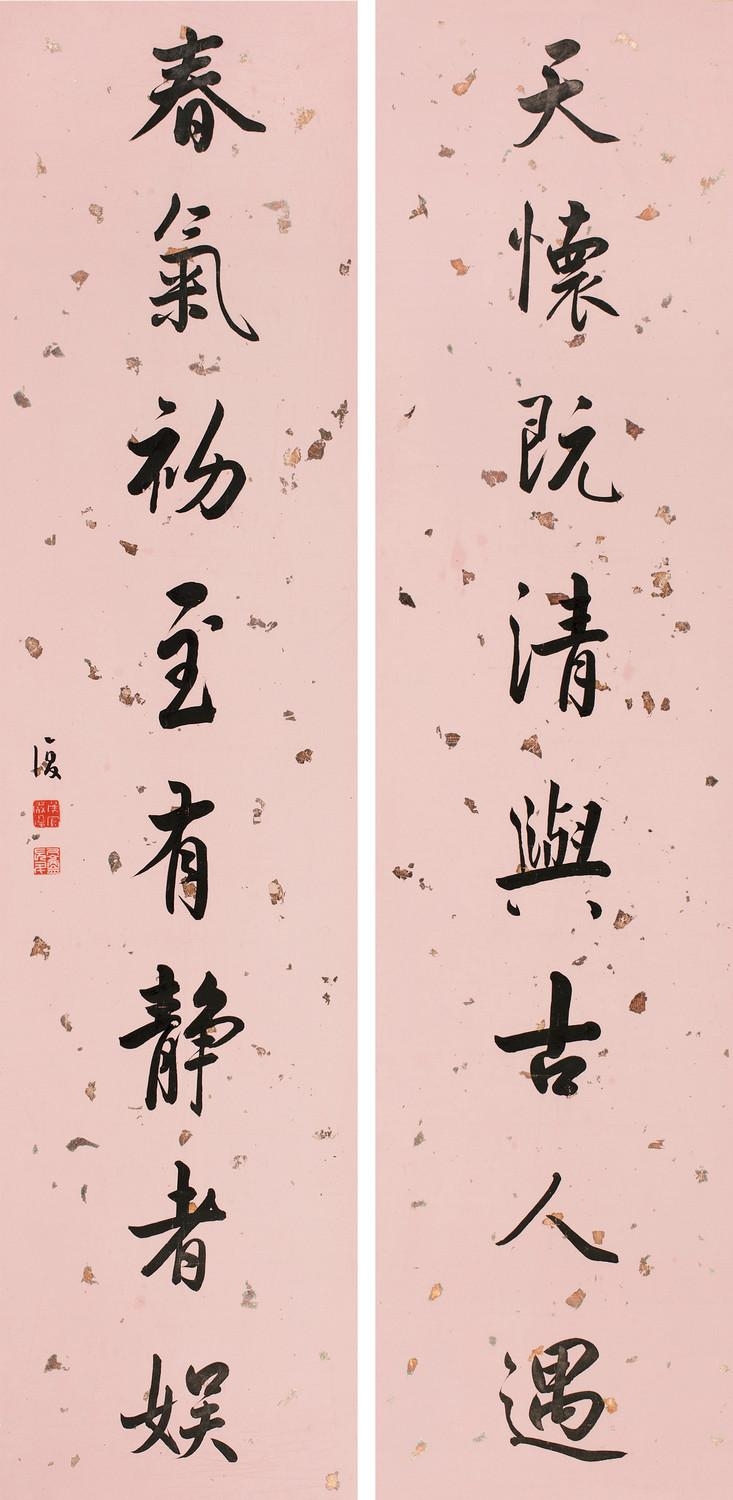 天懷既清與古人遇
春氣初至有靜者娱
復